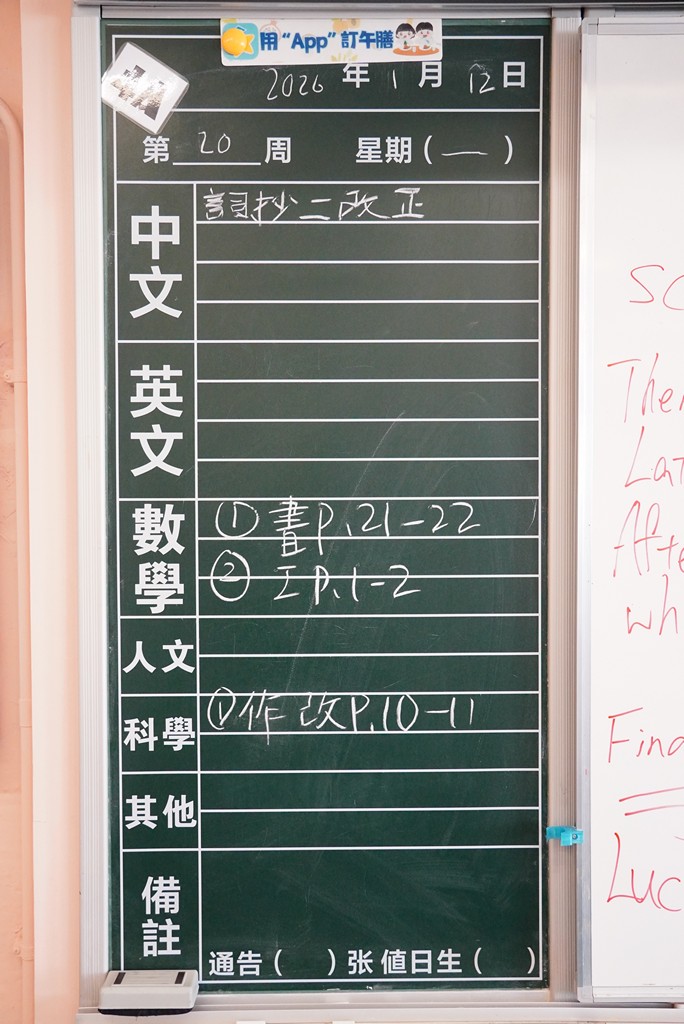 用“App”訂午膳
4A
2026 年 1 月 12 日
第 20 周 星期（一）
中文
詞抄二改正
英文
數學
① 書P.21-22
② 工P.1-2
人文
科學
① 作改P.10-11
其他
備註
通告（ ）张 值日生（ ）
SC
Ther
Lat
Afte
wh
Find
Luc